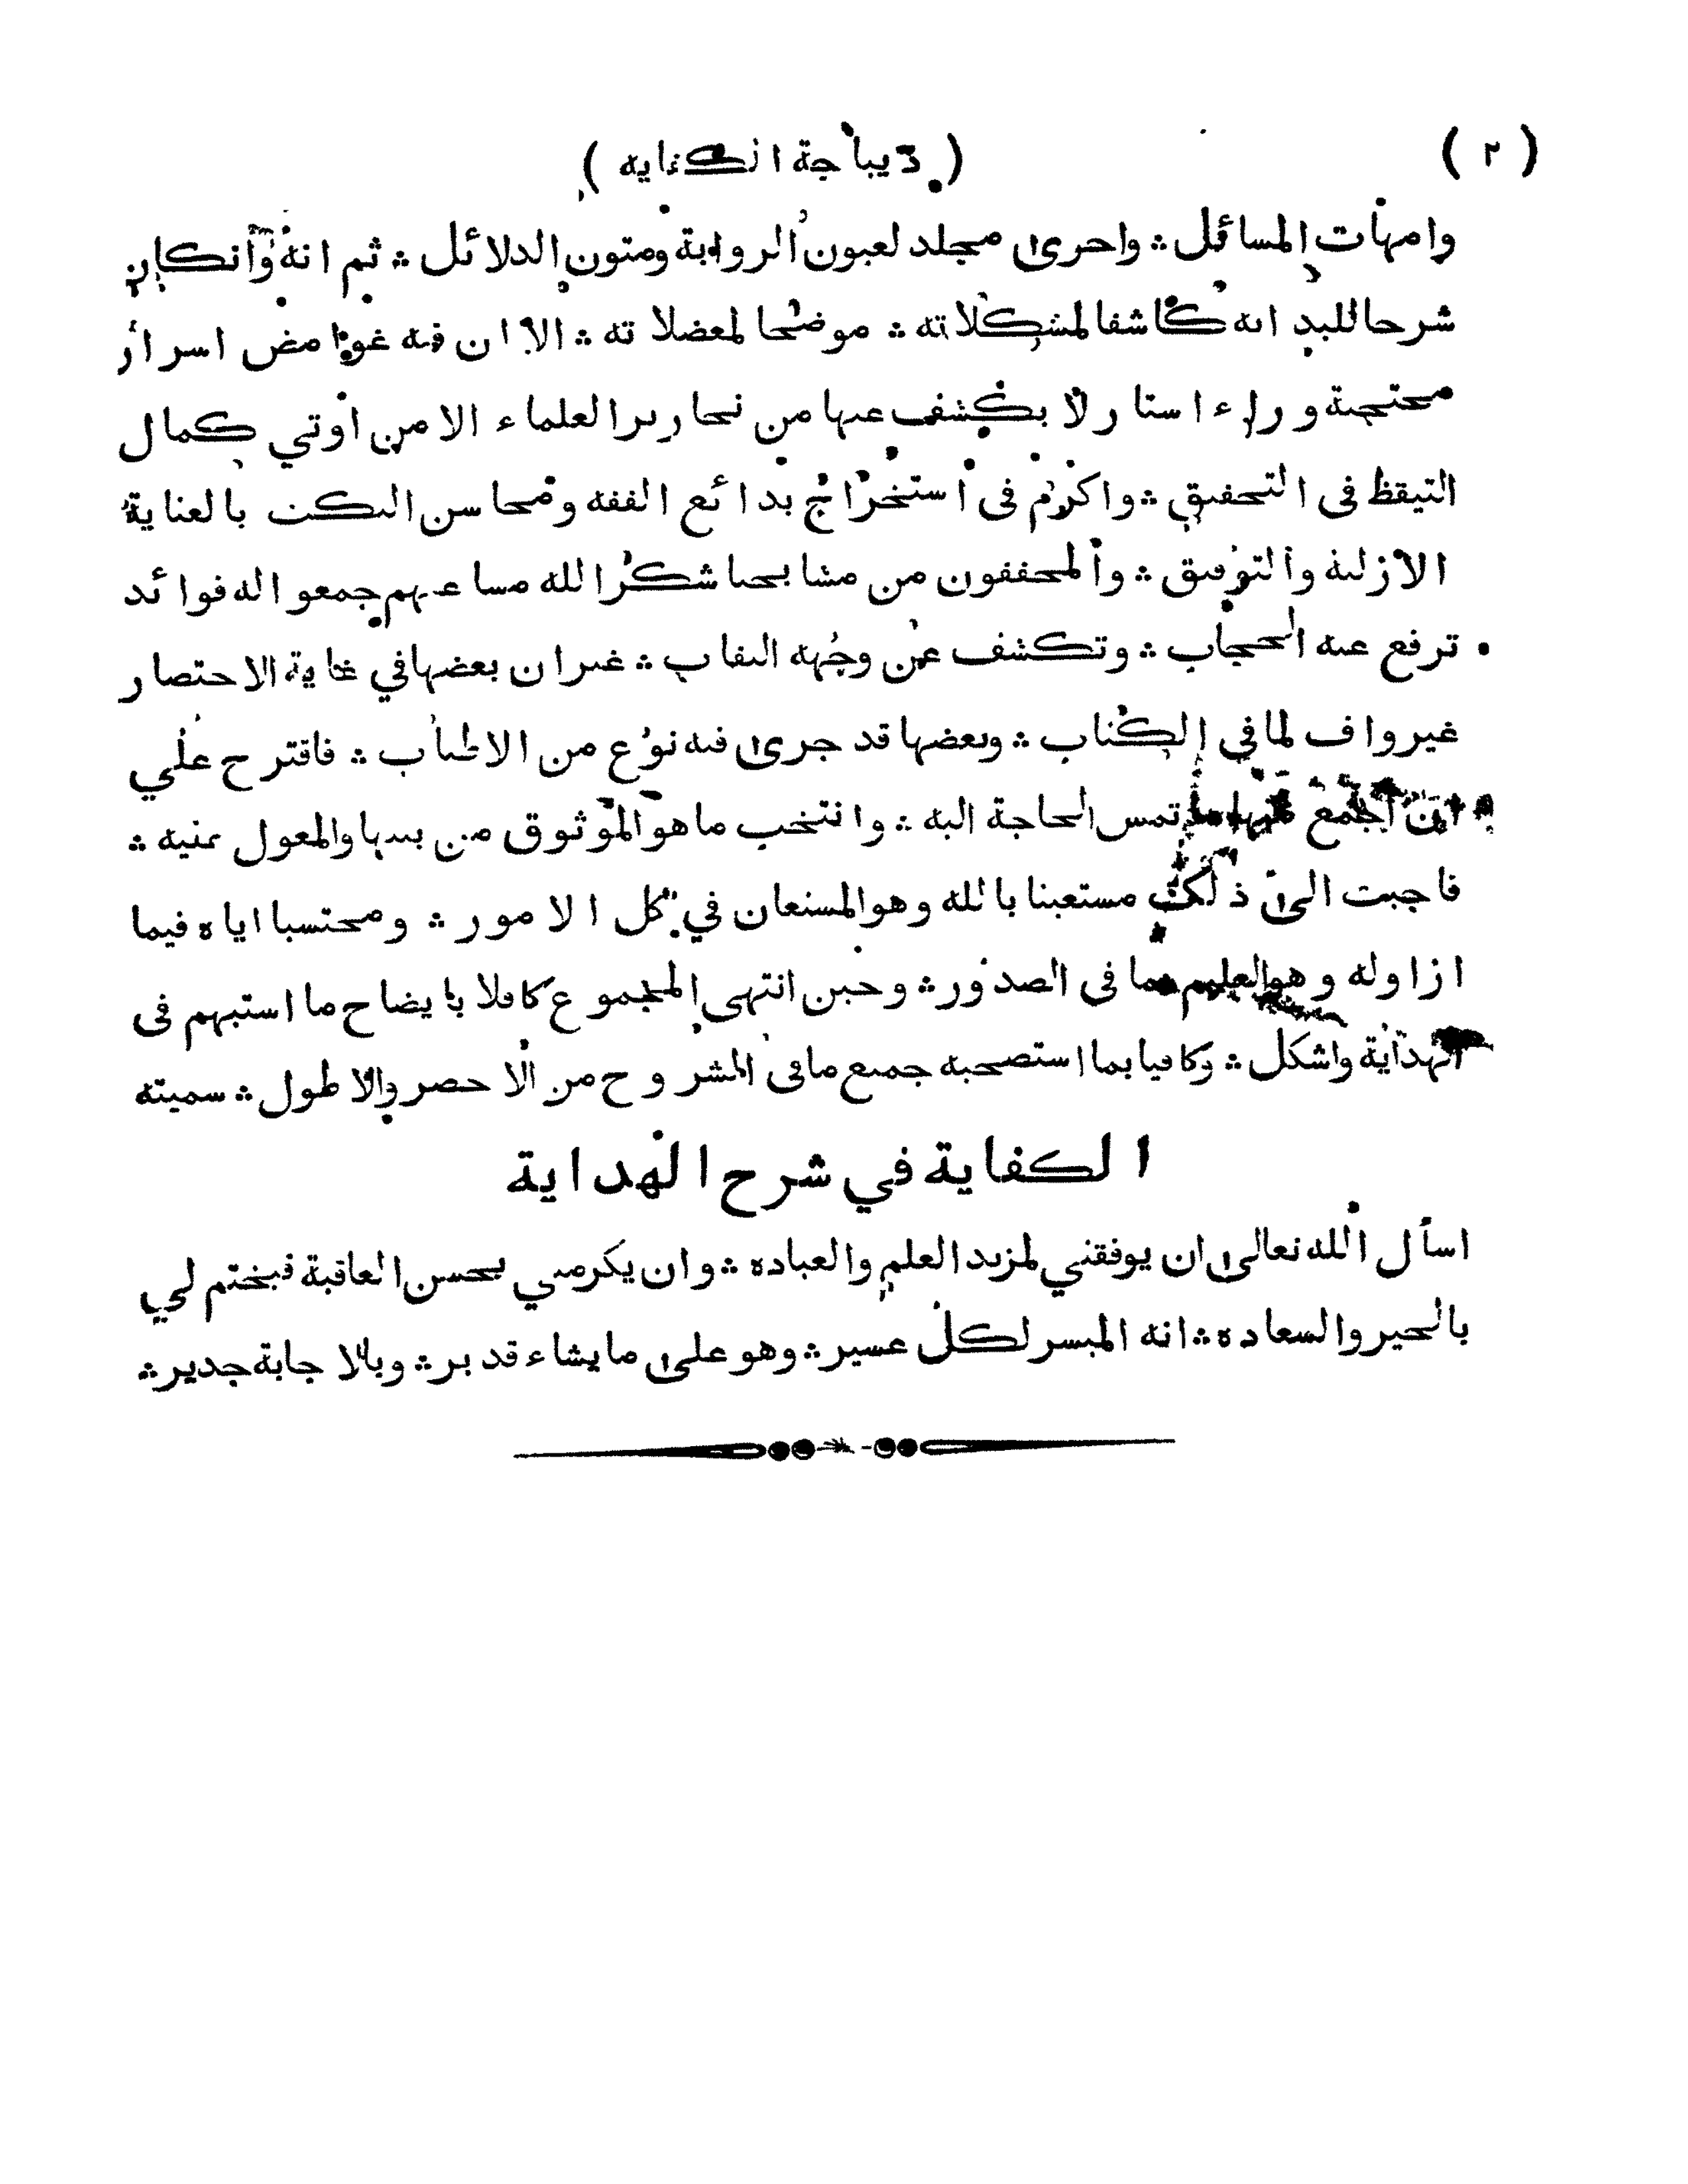 ( ٢ ) ( ديباجة الكفاية )
وامهات المسائل ؞ واحرى مجلد لعيون الرواية ومتون الدلائل ؞ ثم انه وانكان
شرحا للبداية كاشفا لمشكلاته ؞ موضحا لمعضلاته ؞ الا ان فيه غوامض اسرار
محتجبة وراء استار لا يكشف عنها من نحارير العلماء الا من اوتي كمال
التيقظ فى التحقيق ؞ واكرم فى استخراج بدائع الفقه ومحاسن النكت بالعناية
الازلية والتوفيق ؞ والمحققون من مشايخنا شكر الله مساعيهم جمعوا له فوائد
ترفع عنه الحجاب ؞ وتكشف عن وجهه النقاب ؞ غير ان بعضها في غاية الاختصار
غير واف لما في الكتاب ؞ وبعضها قد جرى فيه نوع من الاطناب ؞ فاقترح علي
ان اجمع منها ما تمس الحاجة اليه ؞ وانتخب ما هو الموثوق من بينها والمعول
فاجبت الى ذلك مستعينا بالله وهو المستعان في كل الامور ؞ ومحتسبا اياه فيما
ازاوله وهو العليم بما فى الصدور ؞ وحين انتهى المجموع كافلا بايضاح ما استبهم فى
الهداية واشكل ؞ وكافيا بما استصحبه جميع مافى الشروح من الاخصر والاطول ؞ سميته
الكفاية في شرح الهداية
اسأل الله تعالى ان يوفقني لمزيد العلم والعباده ؞ وان يكرمني بحسن العاقبة فيختم لي
بالخير والسعاده ؞ انه الميسر لكل عسير ؞ وهو على ما يشاء قدير ؞ وبالاجابة جدير ؞